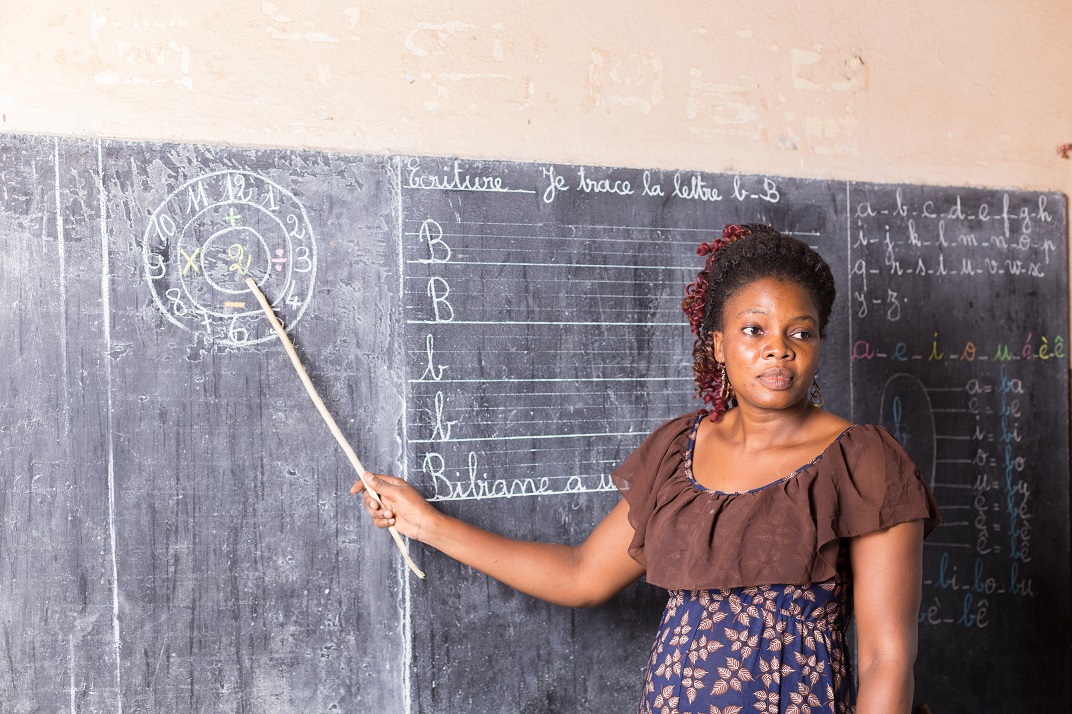 12
11 1
10 + 2
9 x 2 ÷ 3
8 - 4
7 6 5
Ecriture Je trace la lettre b-B
B
B
b
b
Bibiane a
a-b-c-d-e-f-g-h
i-j-k-l-m-n-o-p
q-r-s-t-u-v-w-x
y-z.
a-e-i-o-u-é-è-ê
b
a=ba
e=be
i=bi
o=bo
u=bu
é=bé
è=bè
ê=bê
-bi-bo-bu
bè-bê